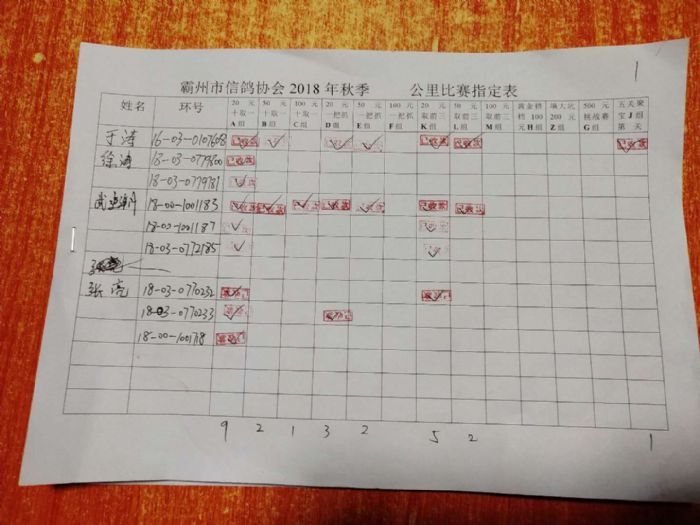 1
霸州市信鸽协会 2018 年秋季 公里比赛指定表
姓名 环号 20 元十取一 A 组 50 元十取一 B 组 100 元十取一 C 组 20 元一把抓 D 组 50 元一把抓 E 组 100 元一把抓 F 组 20 元取前三 K 组 50 元取前三 L 组 100 元取前三 M 组 黄金档 100 元 H 组 200 元 Z 组 500 元挑战赛 G 组 五关聚宝 J 组 第 关
于涛 16-03-0107608 已收款 已收款 已收款 已收款
徐涛 18-03-0779600 已收款
18-03-0779781
18-00-1001183 已收款 已收款 已收款 已收款 已收款
18-00-1001187
18-03-0772185
张亮 18-03-0770232
18-03-0770233
18-00-1001718
9 2 1 3 2 5 2 1